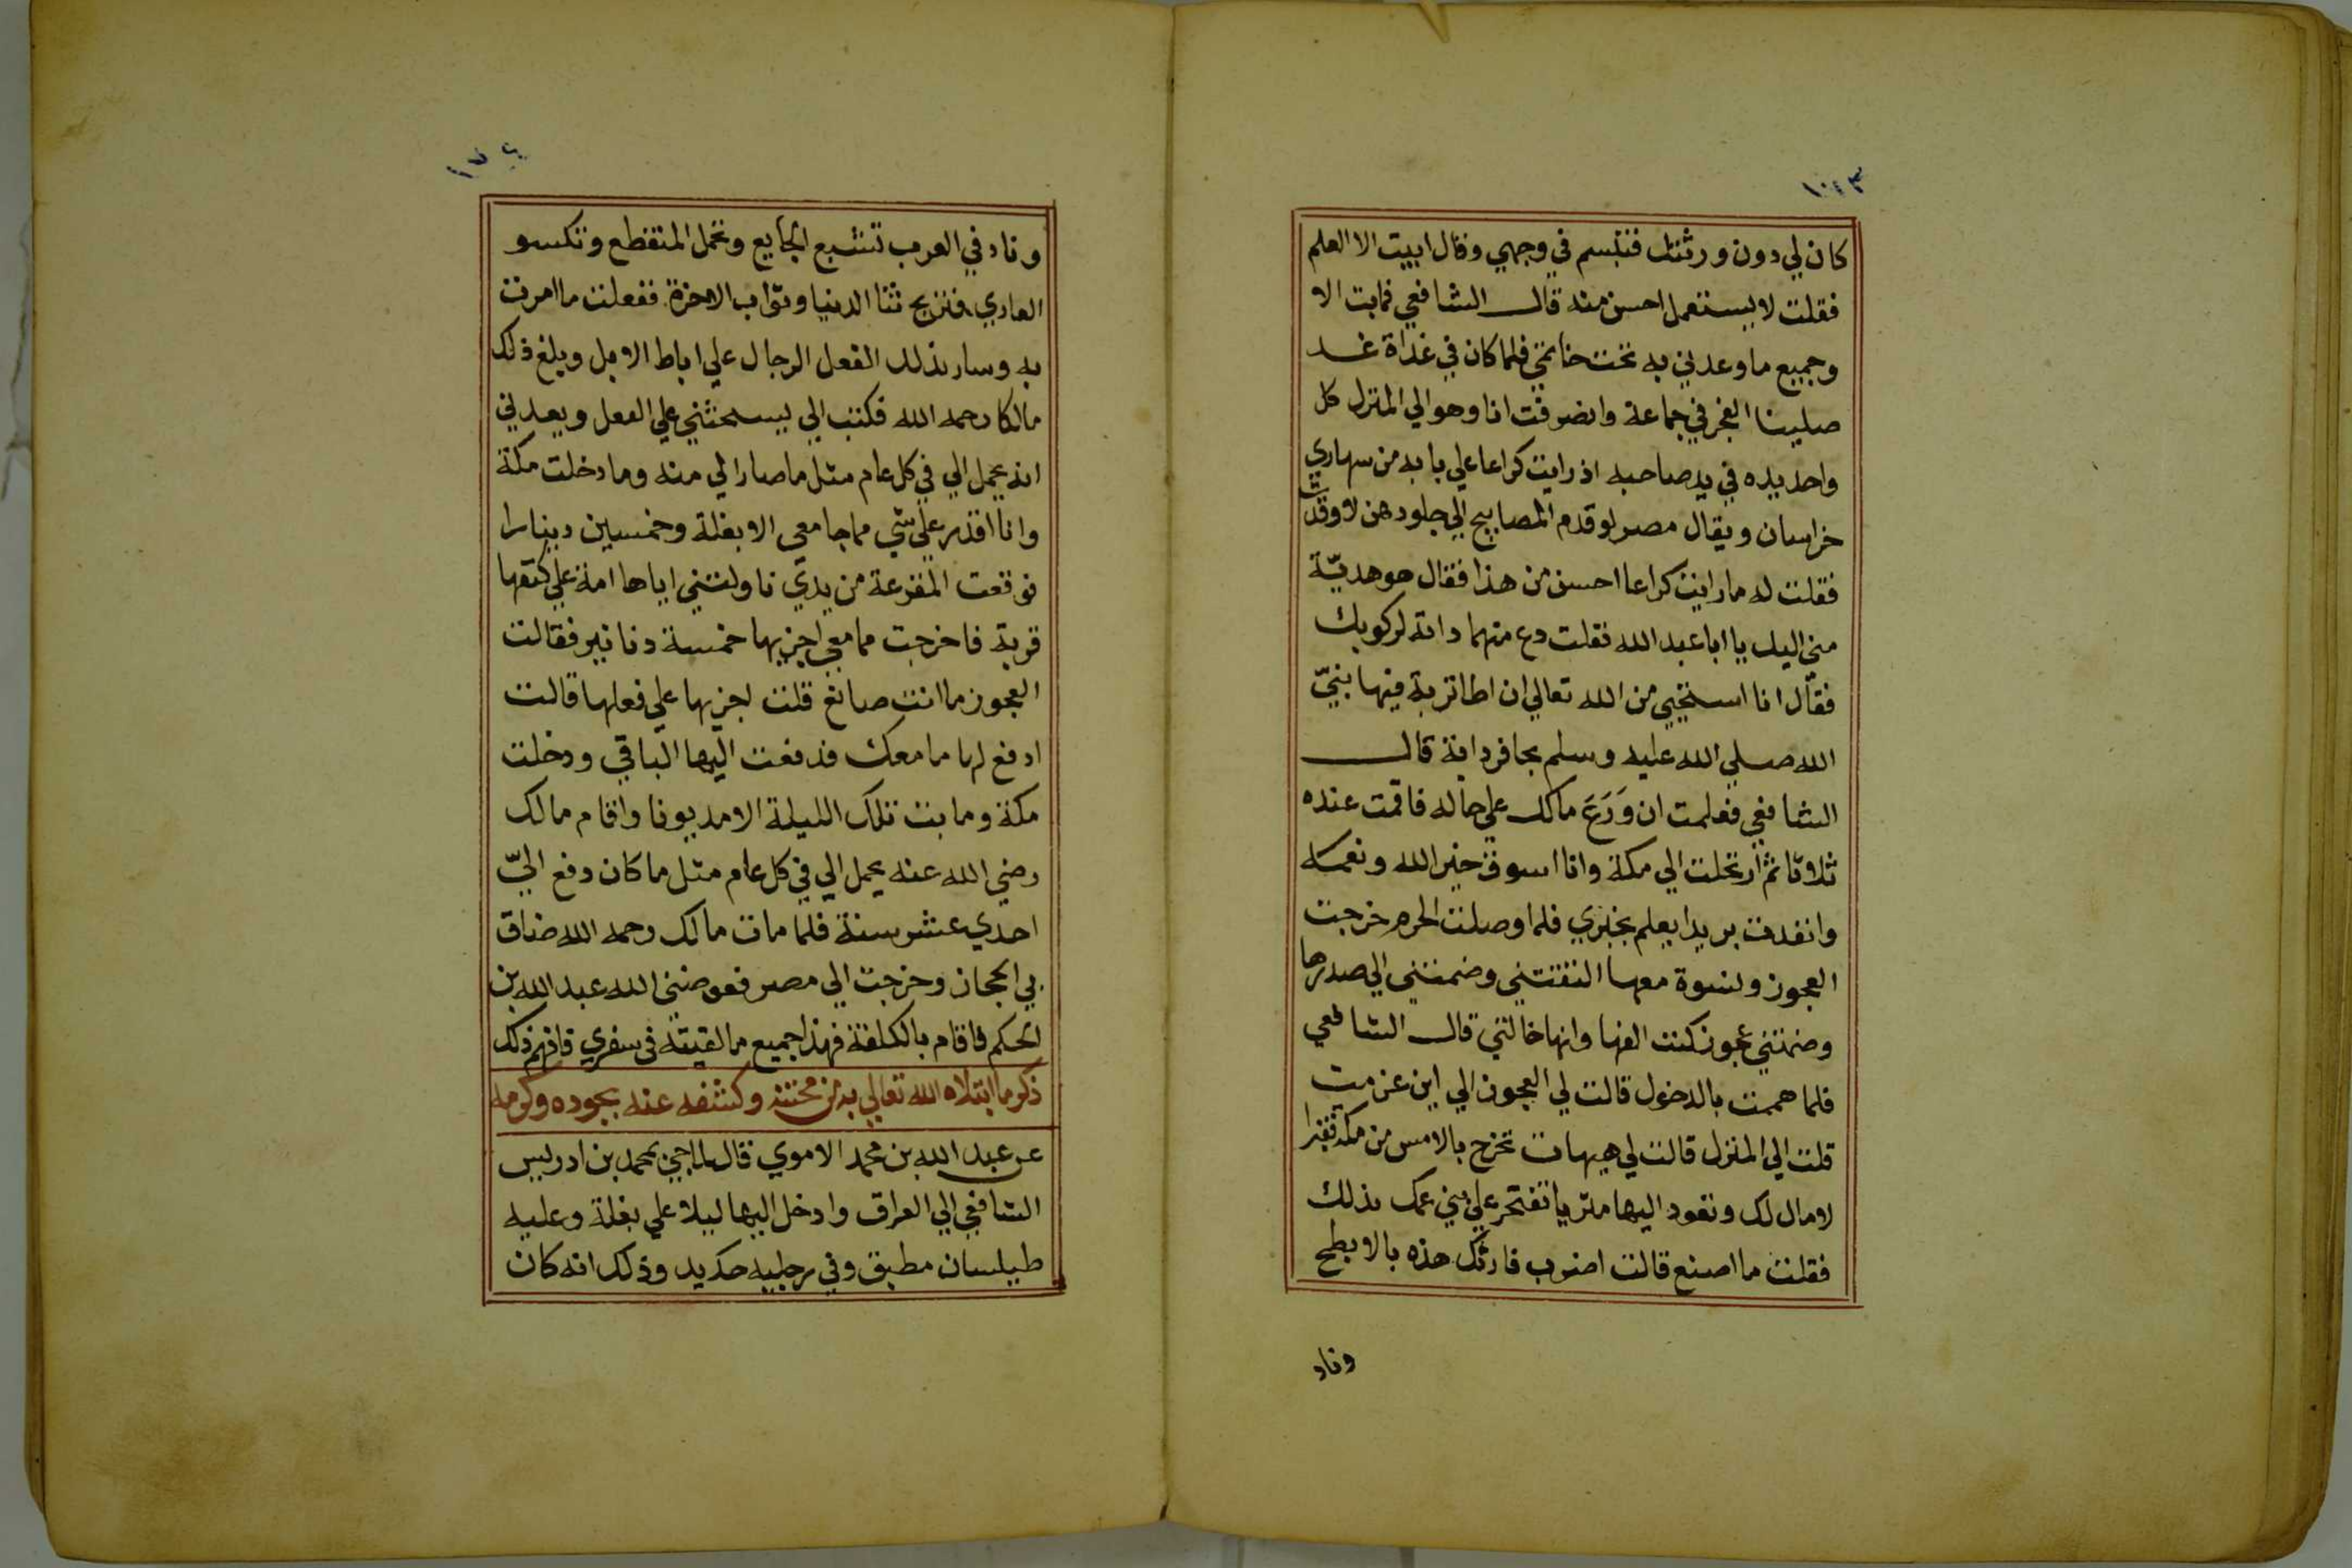 كان لي دون ورثتك فتبسم في وجهي وقال ابيت الا العلم
فقلت لا يستعمل احسن منه قال الشافعي فمابت الا
وجميع ما وعدني به تحت خاتمي فلما كان في غداة غد
صلينا الفجر في جماعة وانصرفت انا وهو الي المنزل كل
واحد يده في يد صاحبه اذ رايت كراعا علي بابه من سهاري
خراسان ويقال مصر لو قدم المصابيح الي جلودهن لاوقدت
فقلت له ما رايت كراعا احسن من هذا فقال هو هديّة
مني اليك يا ابا عبد الله فقلت دع منهما دابة لركوبك
فقال انا استحيي من الله تعالي ان اطا تربة فيها نبيّ
الله صلي الله عليه وسلم بحافر دابة قال
الشافعي فعلمت ان وَرَعَ مالك علي حاله فاقمت عنده
ثلاثا ثم ارتحلت الي مكة وانا اسوق خير الله ونعمه
وانفدت بريدا يعلم بخبري فلما وصلت الحرم خرجت
العجوز ونسوة معها التقتني وضمتني الي صدرها
وضمتني عجوز كنت الفها وانها خالتي قال الشافعي
فلما هممت بالدخول قالت لي العجوز الي اين عزمت
قلت الي المنزل قالت لي هيهات تخرج بالامس من مكة فقيرا
لا مال لك وتعود اليها مثريا تفتخر علي بني عمك بذلك
فقلت ما اصنع قالت اضرب قاربك هذه بالابطح
وناد
وناد في العرب تشبع الجايع وتحمل المنقطع وتكسو
العاري فتربح ثنا الدنيا وثواب الاخرة ففعلت ما امرت
به وسار بذلك الفعل الرجال علي اباط الابل وبلغ ذلك
مالكا رحمه الله فكتب الي يستحثني علي الفعل ويعدني
انه يحمل الي في كل عام مثل ما صار الي منه وما دخلت مكة
وانا اقدر علي شي مما جا معي الا بغلة وخمسين دينارا
فوقعت المقرعة من يدي ناولتني اياها امة علي كتفها
قربة فاخرجت مما معي اجزيها خمسة دنانير فقالت
العجوز ما انت صانع قلت اجزيها علي فعلها قالت
ادفع لها ما معك فدفعت اليها الباقي ودخلت
مكة وما بت تلك الليلة الا مديونا واقام مالك
رضي الله عنه يحمل الي في كل عام مثل ما كان دفع اليّ
احدي عشر سنة فلما مات مالك رحمه الله ضاق
بي الحجاز وخرجت الي مصر فعوضني الله عبد الله بن
الحكم فاقام بالكلفة فهذا جميع ما لقيته في سفري فافهم ذلك
ذكر ما ابتلاه الله تعالي به من محنته وكشفه عنه بجوده وكرمه
عن عبد الله بن محمد الاموي قال لما جي بمحمد بن ادريس
الشافعي الي العراق وادخل اليها ليلا علي بغلة وعليه
طيلسان مطبق وفي رجليه حديد وذلك انه كان